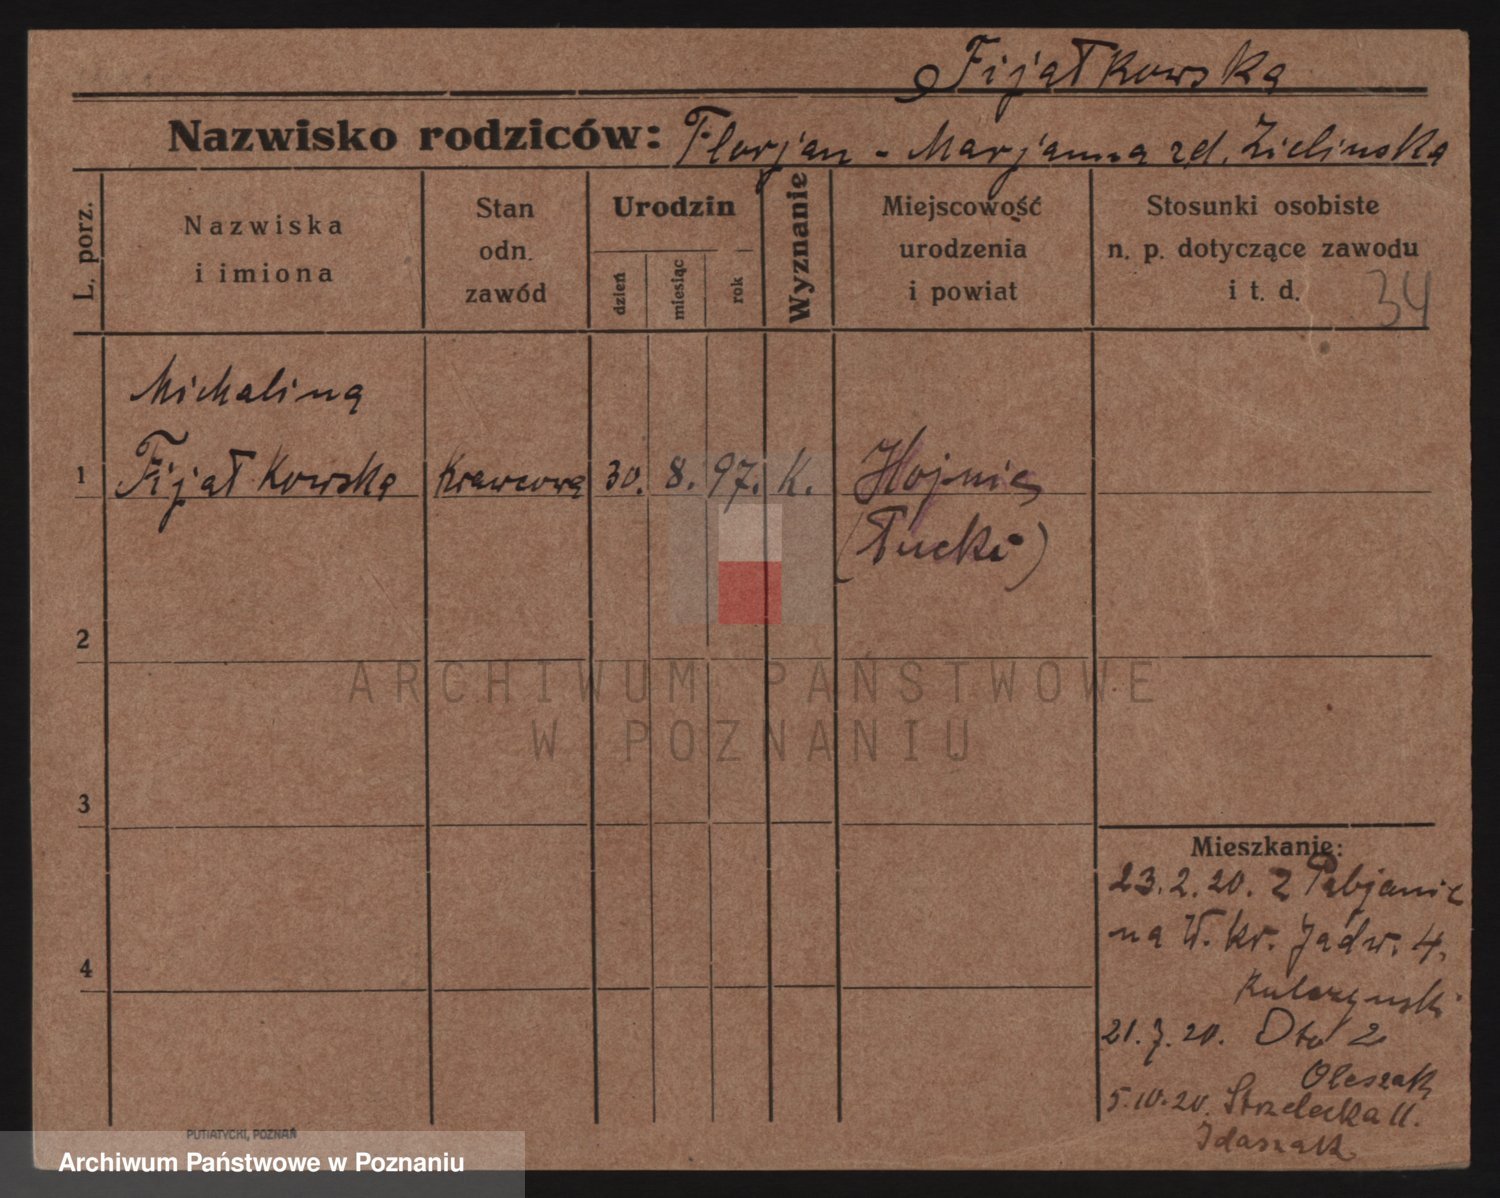 Fijałkowska
Nazwisko rodziców: Florjan - Marjanna zd. Zielinska
L. porz.
Nazwiska
i imiona
Stan
odn.
zawód
Urodzin
dzień
miesiąc
rok
Wyznanie
Miejscowość
urodzenia
i powiat
Stosunki osobiste
n. p. dotyczące zawodu
i t. d.
34
Michalina
1 Fijałkowska Krawcowa 30. 8. 97. K.
(Łucki)
2
ARCHIWUM PAŃSTWOWE
W POZNANIU
3
4
Mieszkanie:
23.2.20. z Pabjanic
na W. kr. Jadw. 4.
21.7.20. Dto 2
Oleszak
5.10.20. Strzelecka 11.
PUTIATYCKI, POZNAŃ
Archiwum Państwowe w Poznaniu